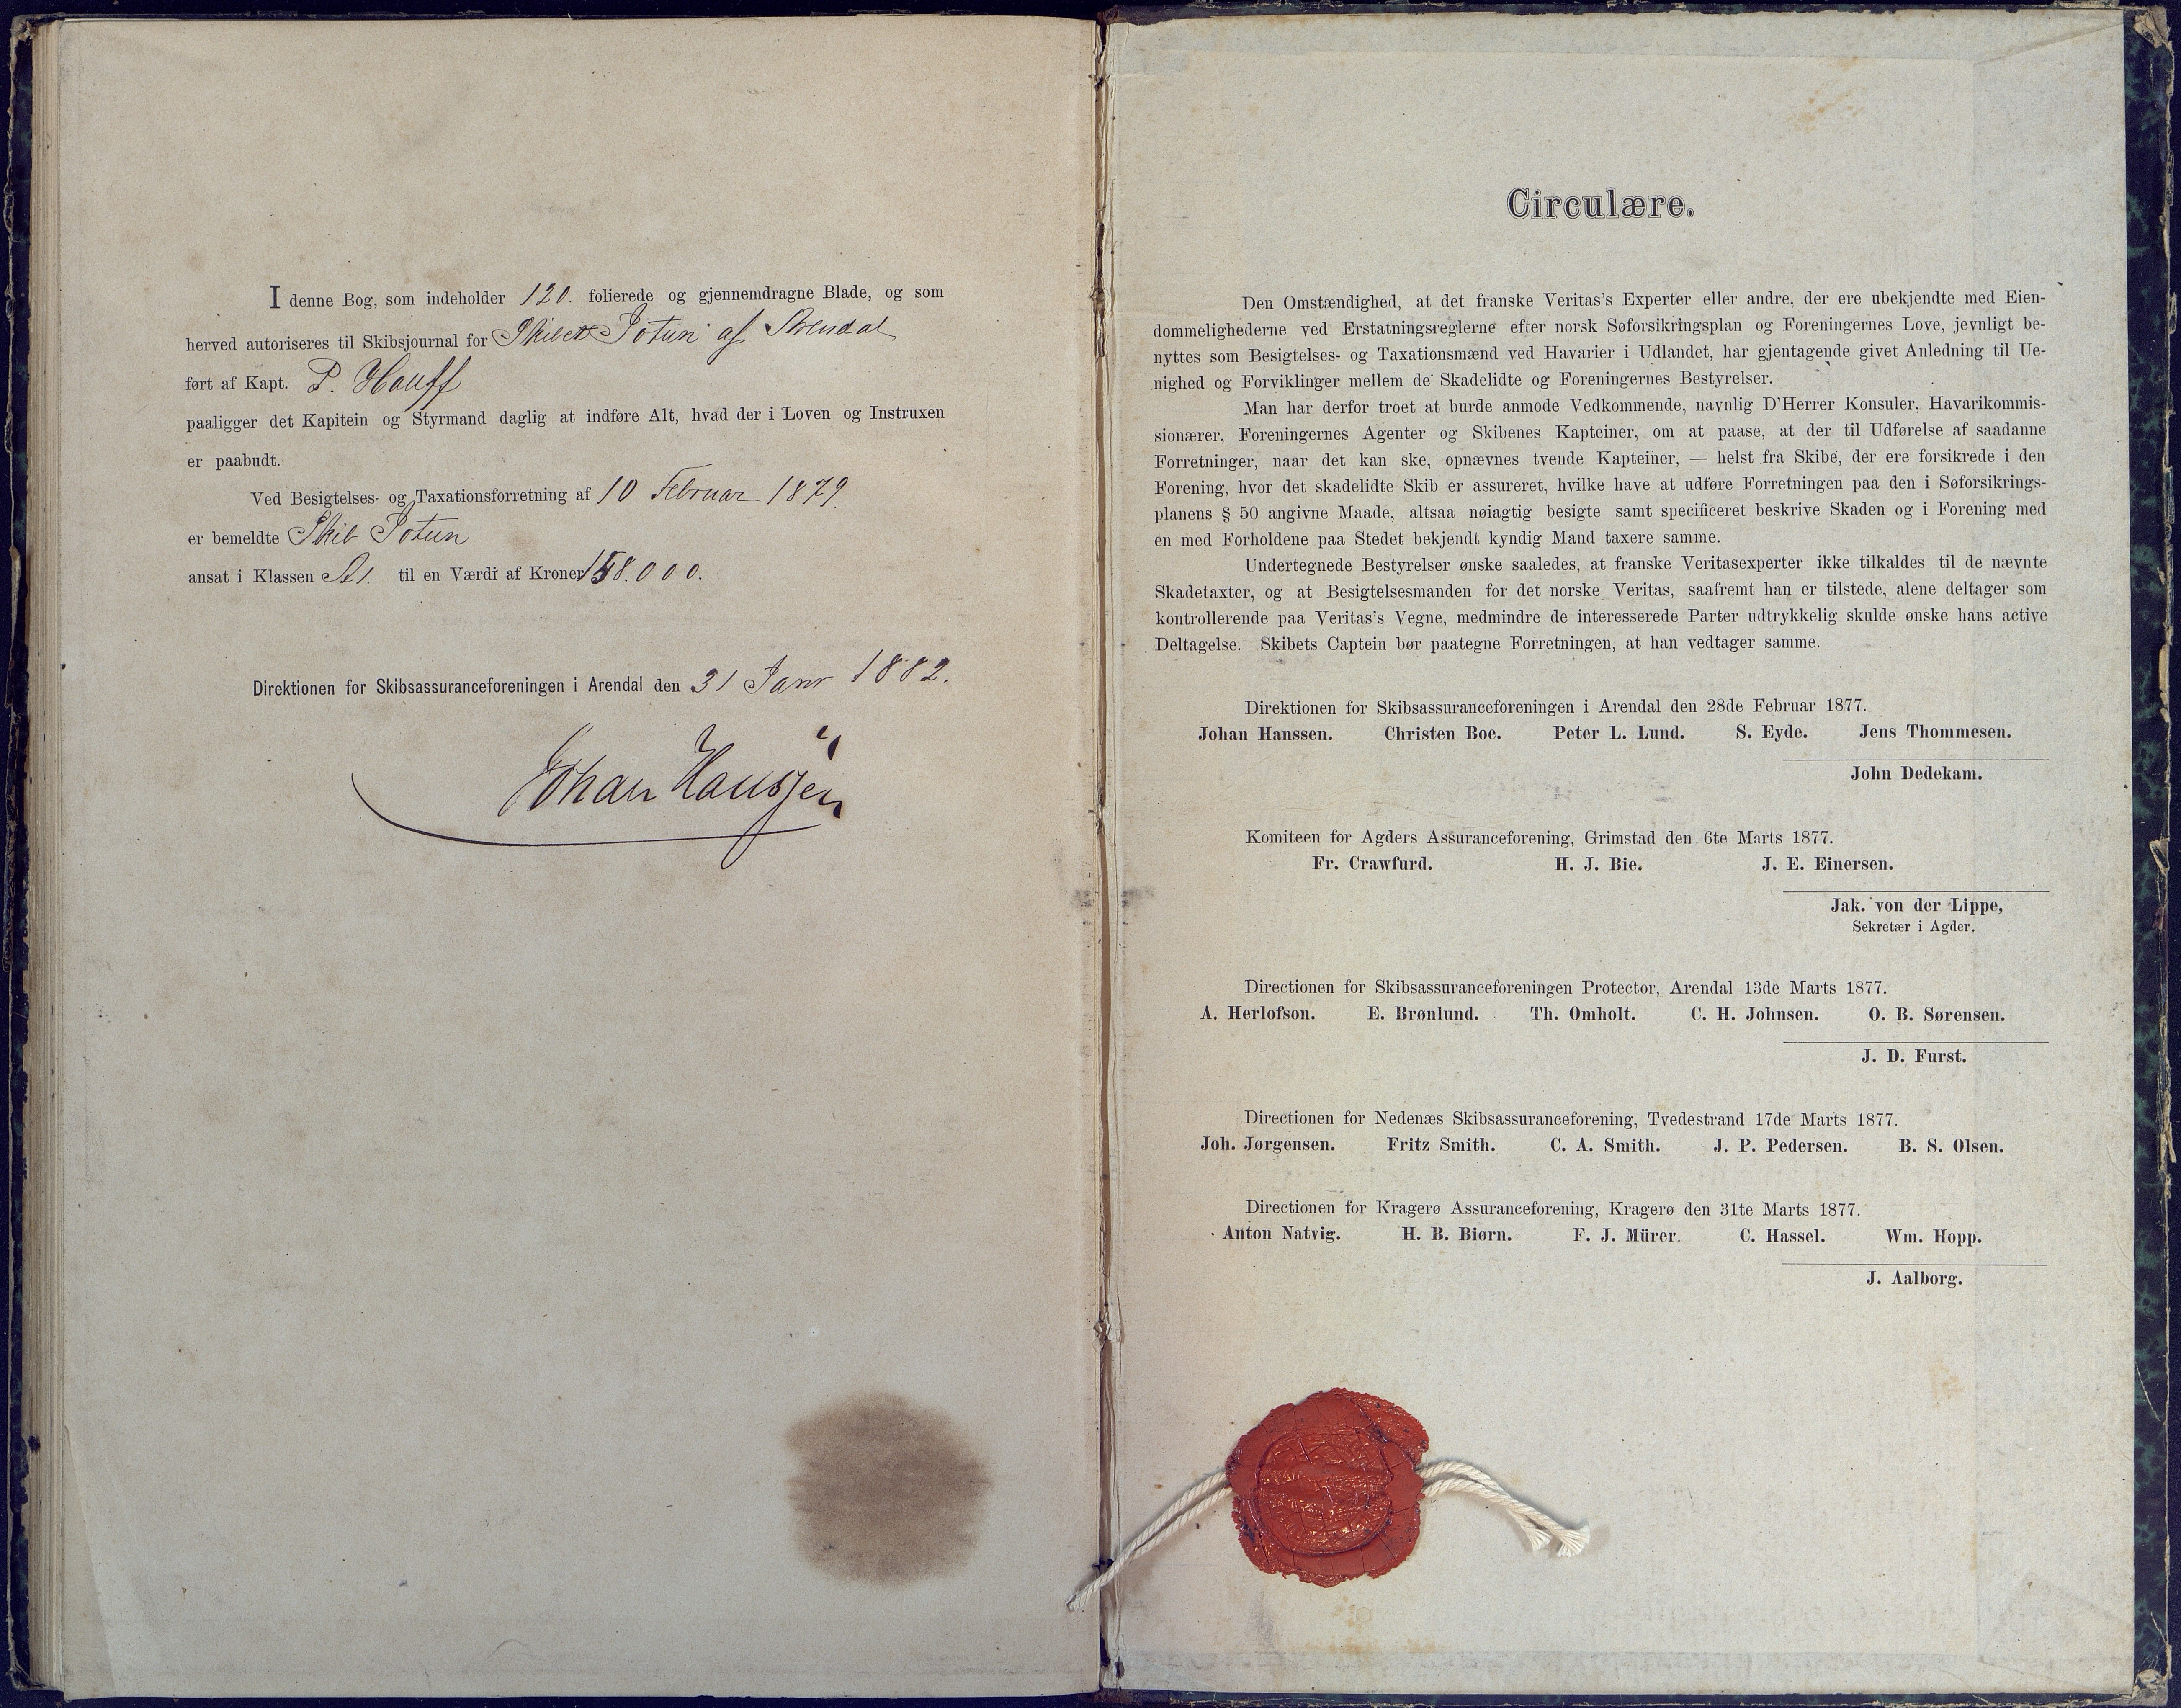 I denne Bog, som indeholder 120. folierede og gjennemdragne Blade, og som
herved autoriseres til Skibsjournal for Skibet Jotun af Arendal
ført af Kapt. P. Hauff
paaligger det Kapitein og Styrmand daglig at indføre Alt, hvad der i Loven og Instruxen
er paabudt.
Ved Besigtelses- og Taxationsforretning af 10 Februar 1879.
er bemeldte Skib Jotun
ansat i Klassen A1. til en Værdi af Kroner 158.000.
Direktionen for Skibsassuranceforeningen i Arendal den 31 Janr 1882.
Johan Hanssen
Circulære.
Den Omstændighed, at det franske Veritas's Experter eller andre, der ere ubekjendte med Eien-
dommelighederne ved Erstatningsreglerne efter norsk Søforsikringsplan og Foreningernes Love, jevnligt be-
nyttes som Besigtelses- og Taxationsmænd ved Havarier i Udlandet, har gjentagende givet Anledning til Ue-
nighed og Forviklinger mellem de Skadelidte og Foreningernes Bestyrelser.
Man har derfor troet at burde anmode Vedkommende, navnlig D'Herrer Konsuler, Havarikommis-
sionærer, Foreningernes Agenter og Skibenes Kapteiner, om at paase, at der til Udførelse af saadanne
Forretninger, naar det kan ske, opnævnes tvende Kapteiner, — helst fra Skibe, der ere forsikrede i den
Forening, hvor det skadelidte Skib er assureret, hvilke have at udføre Forretningen paa den i Søforsikrings-
planens § 50 angivne Maade, altsaa nøiagtig besigte samt specificeret beskrive Skaden og i Forening med
en med Forholdene paa Stedet bekjendt kyndig Mand taxere samme.
Undertegnede Bestyrelser ønske saaledes, at franske Veritasexperter ikke tilkaldes til de nævnte
Skadetaxter, og at Besigtelsesmanden for det norske Veritas, saafremt han er tilstede, alene deltager som
kontrollerende paa Veritas's Vegne, medmindre de interesserede Parter udtrykkelig skulde ønske hans active
Deltagelse. Skibets Captein bør paategne Forretningen, at han vedtager samme.
Direktionen for Skibsassuranceforeningen i Arendal den 28de Februar 1877.
Johan Hanssen. Christen Boe. Peter L. Lund. S. Eyde. Jens Thommesen.
John Dedekam.
Komiteen for Agders Assuranceforening, Grimstad den 6te Marts 1877.
Fr. Crawfurd. H. J. Bie. J. E. Einersen.
Jak. von der Lippe,
Sekretær i Agder.
Directionen for Skibsassuranceforeningen Protector, Arendal 13de Marts 1877.
A. Herlofson. E. Brønlund. Th. Omholt. C. H. Johnsen. O. B. Sørensen.
J. D. Furst.
Directionen for Nedenæs Skibsassuranceforening, Tvedestrand 17de Marts 1877.
Joh. Jørgensen. Fritz Smith. C. A. Smith. J. P. Pedersen. B. S. Olsen.
Directionen for Kragerø Assuranceforening, Kragerø den 31te Marts 1877.
Anton Natvig. H. B. Biørn. F. J. Mürer. C. Hassel. Wm. Hopp.
J. Aalborg.